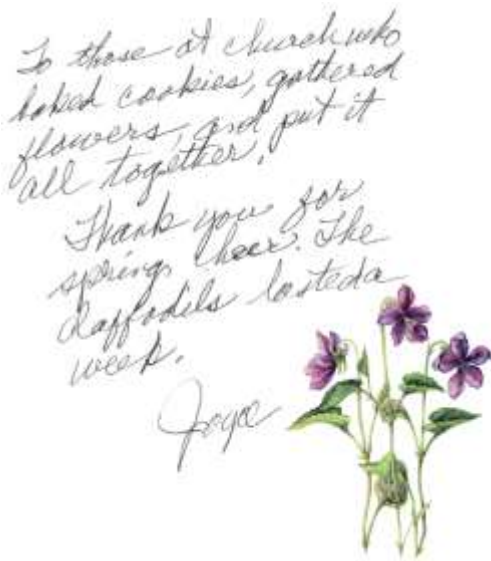 To those at church who
baked cookies, gathered
flowers, and put it
all together,
Thank you for
spring cheer. The
daffodils lasted a
week.
Joyce